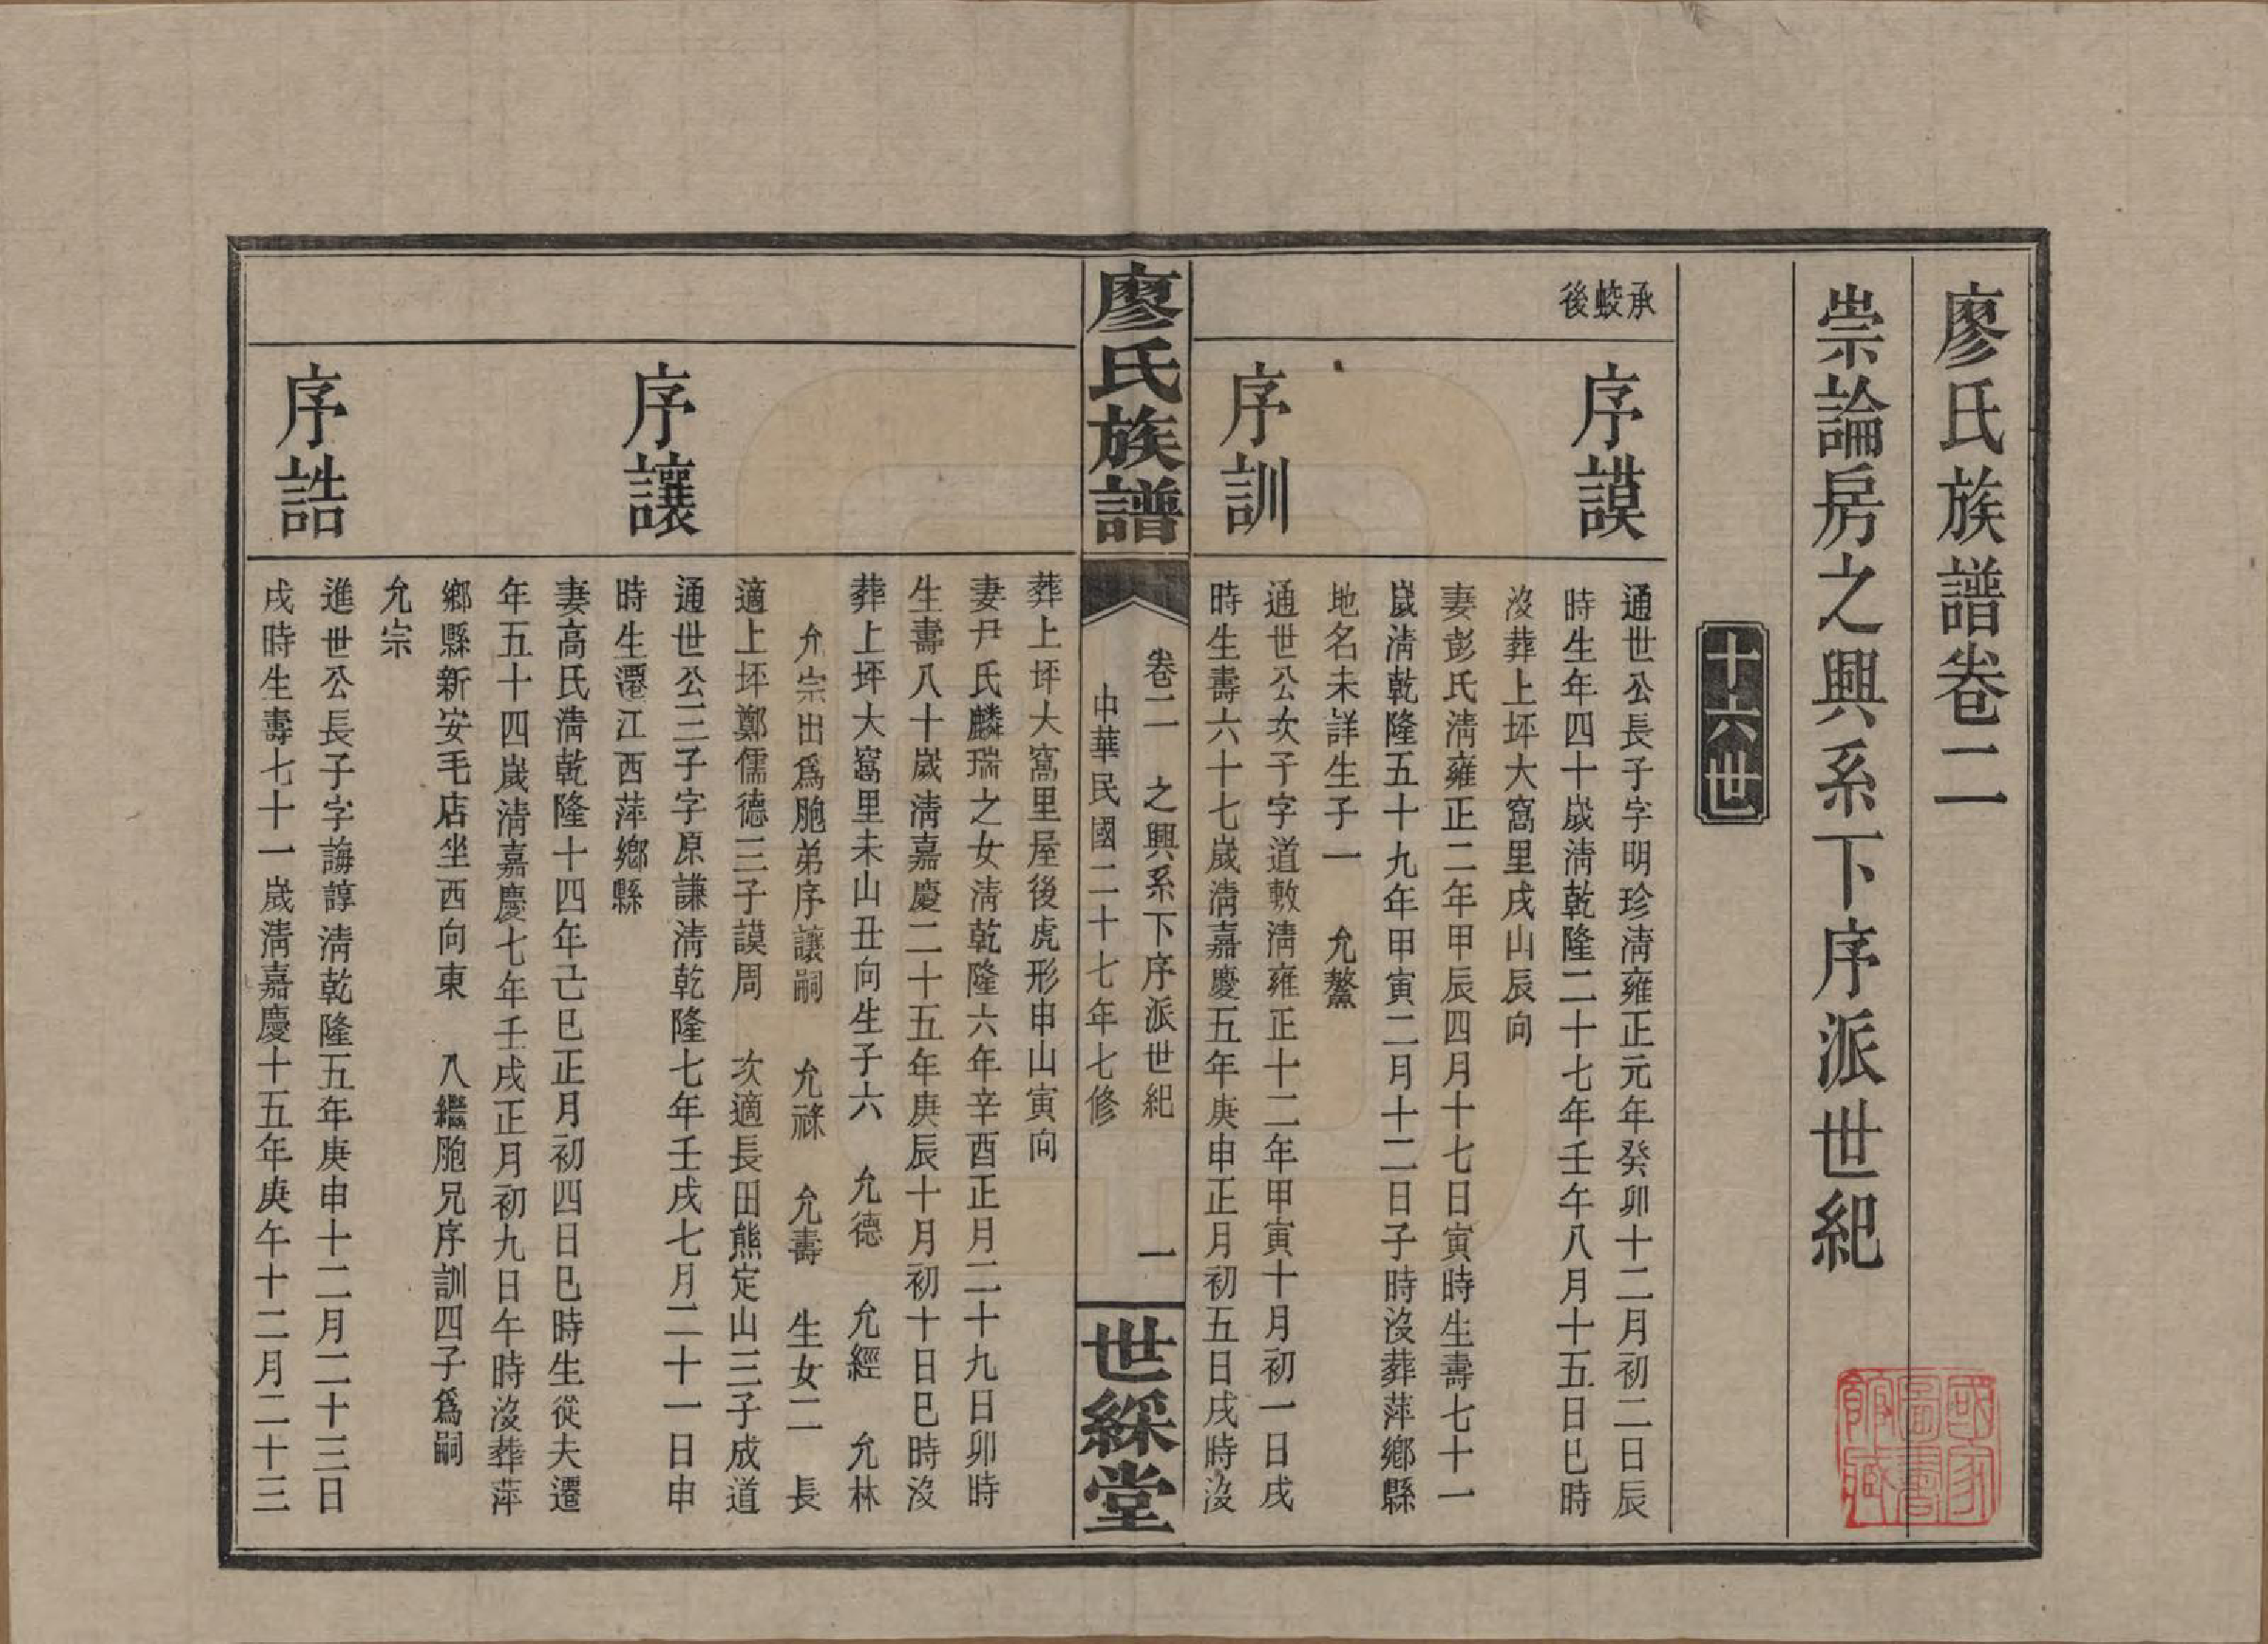 廖氏族譜卷二
崇論房之興系下序派世紀
十六世
承蛟後
序謨
通世公長子字明珍淸雍正元年癸卯十二月初二日辰
時生年四十歲淸乾隆二十七年壬午八月十五日巳時
沒葬上坪大窩里戌山辰向
妻彭氏淸雍正二年甲辰四月十七日寅時生壽七十一
歲淸乾隆五十九年甲寅二月十二日子時沒葬萍鄉縣
地名未詳生子一　允鰲
序訓
通世公次子字道敷淸雍正十二年甲寅十月初一日戌
時生壽六十七歲淸嘉慶五年庚申正月初五日戌時沒
廖氏族譜
卷二　之興系下序派世紀　一
中華民國二十七年七修
世綵堂
葬上坪大窩里屋後虎形申山寅向
妻尹氏麟瑞之女淸乾隆六年辛酉正月二十九日卯時
生壽八十歲淸嘉慶二十五年庚辰十月初十日巳時沒
葬上坪大窩里未山丑向生子六　允德　允經　允林
允宗出爲胞弟序讓嗣　允祿　允壽　生女二　長
適上坪鄭儒德三子謨周　次適長田熊定山三子成道
序讓
通世公三子字原謙淸乾隆七年壬戌七月二十一日申
時生遷江西萍鄉縣
妻高氏淸乾隆十四年己巳正月初四日巳時生從夫遷
年五十四歲淸嘉慶七年壬戌正月初九日午時沒葬萍
鄉縣新安毛店坐西向東　入繼胞兄序訓四子爲嗣
允宗
序誥
進世公長子字誨諄淸乾隆五年庚申十二月二十三日
戌時生壽七十一歲淸嘉慶十五年庚午十二月二十三
國家圖書館藏